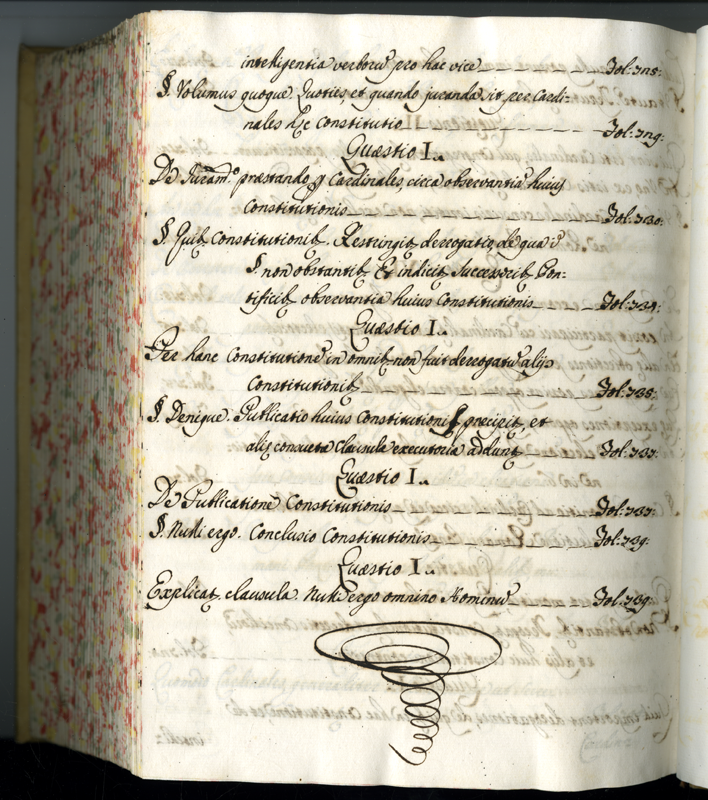 intelligentia verborũ pro hac vice Fol: 725:
§. Volumus quoque. Quoties, et quando juranda sit per Cardi-
nales hęc Constitutio Fol: 729.
Quæstio I..
De Juramᵒ. præstando ꝑ Cardinales, circa observantiã huius
Constitutionis Fol: 730:
§. Quibꝫ Constitutionibꝫ. Restringitꝫ derogatio, de qua ĩ
§. non obstantibꝫ Et indicitꝫ Successoribꝫ Pon-
tificibꝫ observantia huius Constitutionis Fol: 734:
Quæstio I..
Per hanc Constitutionẽ in omnibꝫ non fuit derogatũ alijs
Constitutionibꝫ Fol: 735:
§. Denique. Publicatio huius Constitutionis precipitꝫ, et
alię consuetę clausulę executorię addunt Fol: 737:
Quæstio I..
De Publicatione Constitutionis Fol: 737:
§. Nulli ergo. Conclusio Constitutionis Fol: 739:
Quæstio I..
Explicatꝫ clausula. Nulli ergo omnino Hominũ Fol: 739: